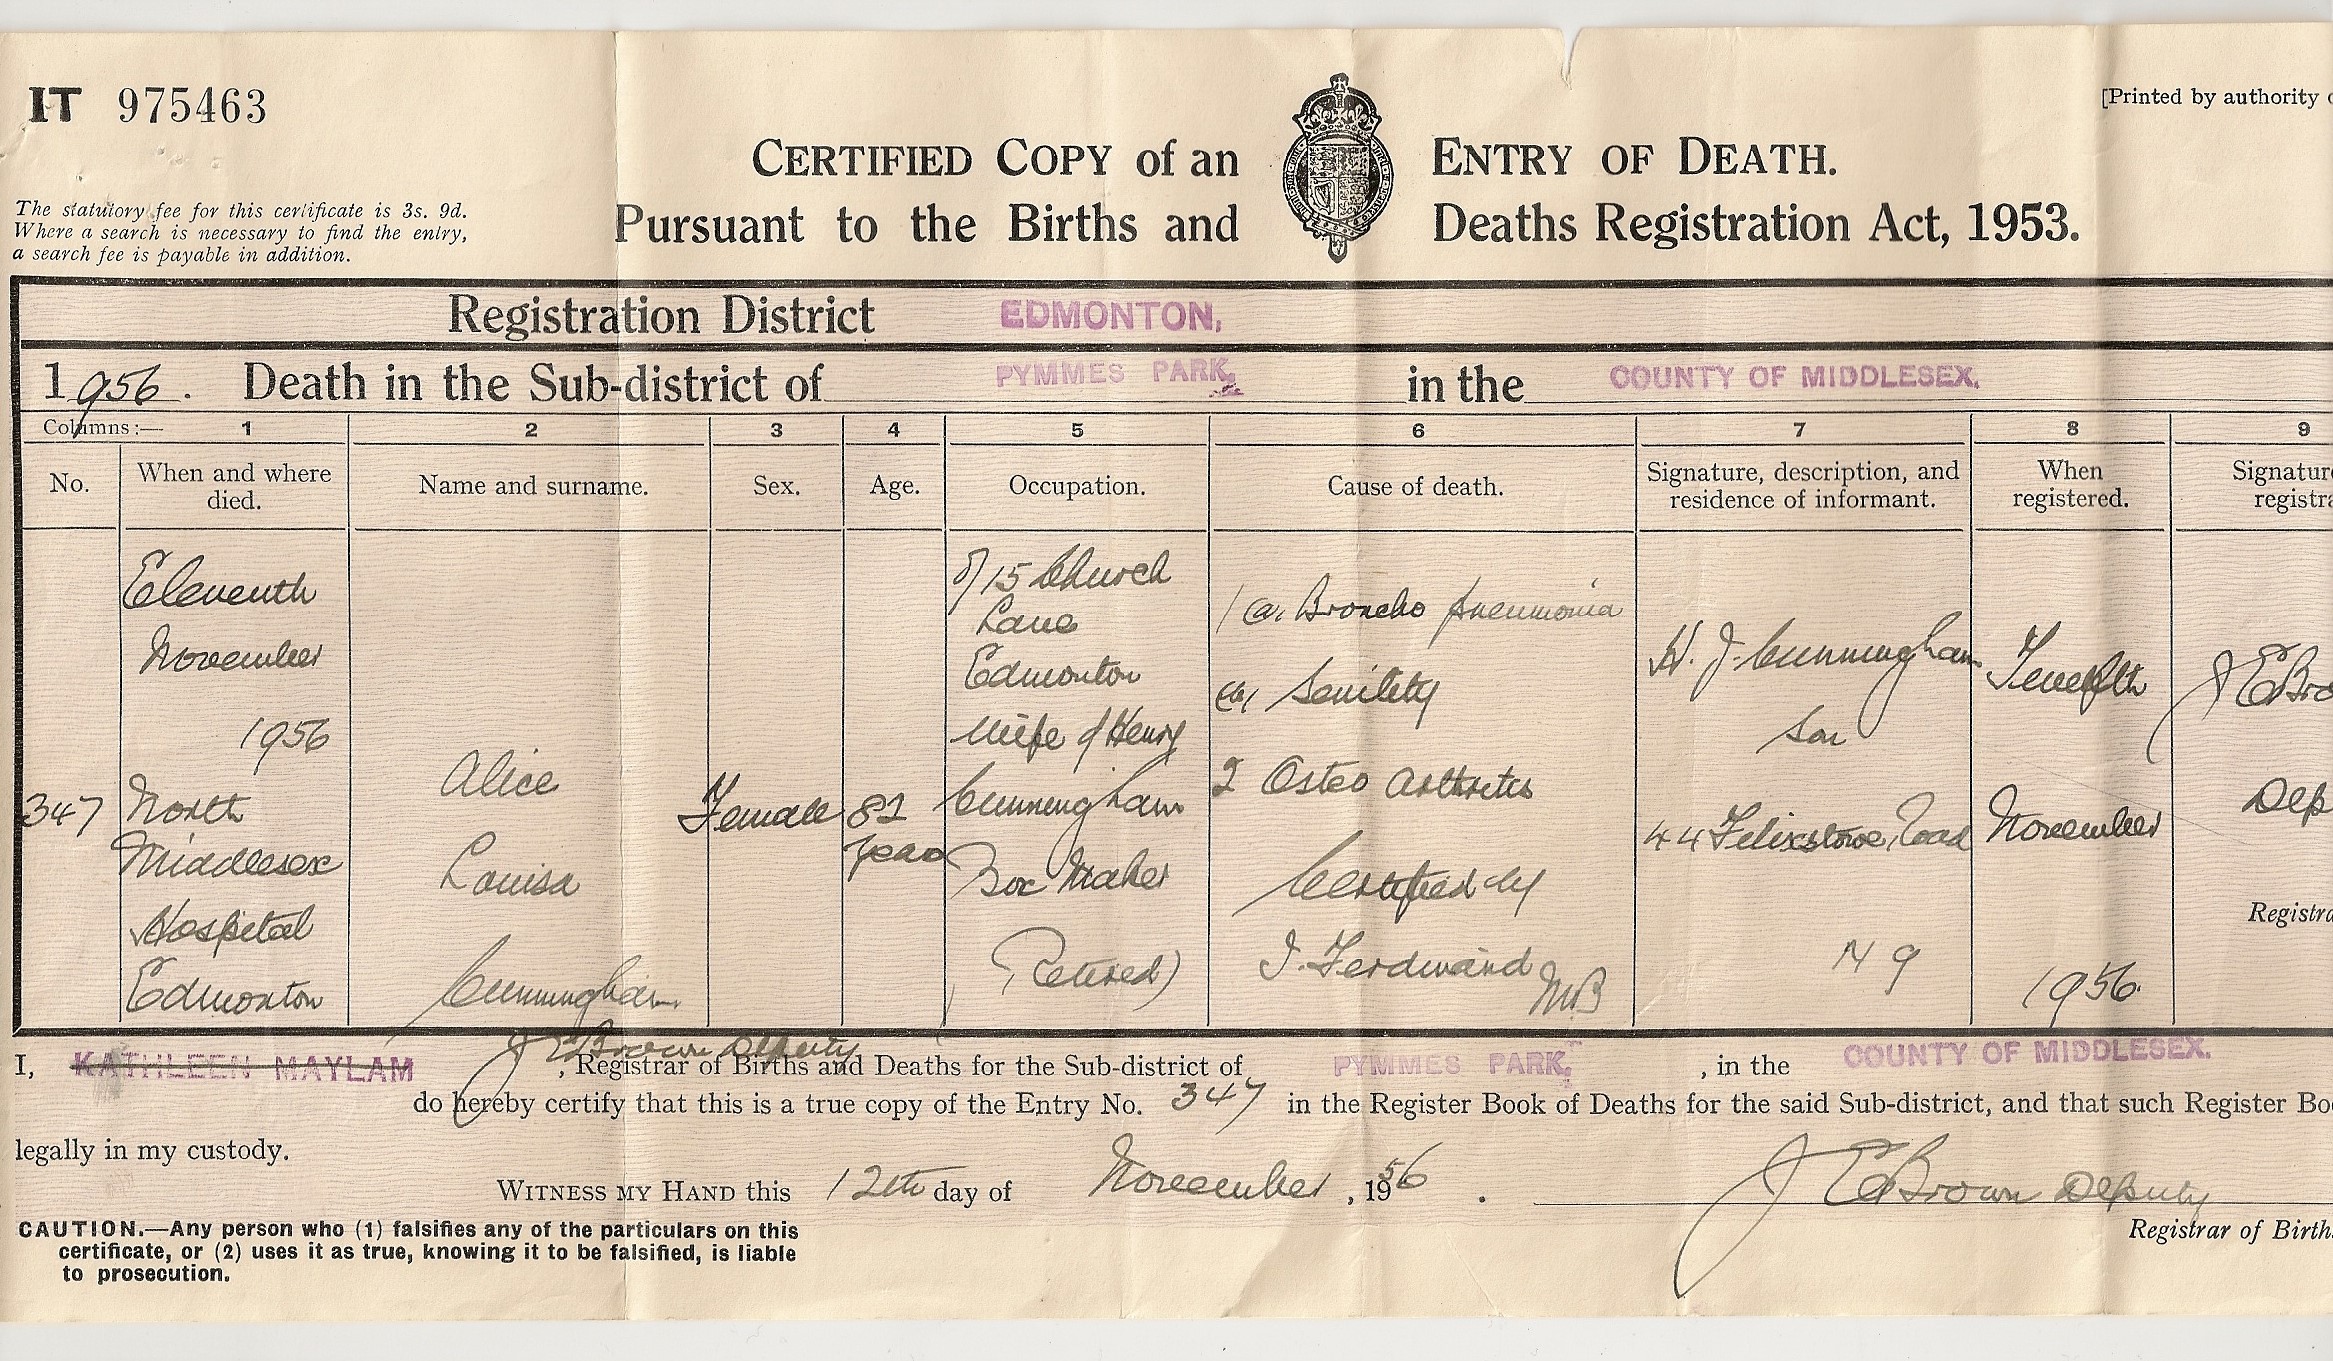 IT 975463
[Printed by authority
CERTIFIED COPY of an ENTRY OF DEATH.
Pursuant to the Births and Deaths Registration Act, 1953.
The statutory fee for this certificate is 3s. 9d.
Where a search is necessary to find the entry,
a search fee is payable in addition.
Registration District EDMONTON,
1956. Death in the Sub-district of PYMMES PARK, in the COUNTY OF MIDDLESEX.
Columns:— 1 2 3 4 5 6 7 8 9
No. When and where died. Name and surname. Sex. Age. Occupation. Cause of death. Signature, description, and residence of informant. When registered. Signatur registr
347
Eleventh
November
1956
North
Middlesex
Hospital
Edmonton
Alice
Louisa
Cunningham
Female
82
years
of 15 Church
Lane
Edmonton
Wife of Henry
Cunningham
Box Maker
(Retired)
1 (a) Broncho pneumonia
(b) Senility
2 Osteo Arthritis
Certified by
J. Ferdinand
MB
H. J. Cunningham
Son
44 Felixstowe Road
N 9
Twelfth
November
1956.
J E Bro
Dep
Registra
I, KATHLEEN MAYLAM J E Brown Deputy, Registrar of Births and Deaths for the Sub-district of PYMMES PARK, , in the COUNTY OF MIDDLESEX.
do hereby certify that this is a true copy of the Entry No. 347 in the Register Book of Deaths for the said Sub-district, and that such Register Bo
legally in my custody.
WITNESS MY HAND this 12th day of November, 1956. J E Brown Deputy
Registrar of Birth
CAUTION.—Any person who (1) falsifies any of the particulars on this
certificate, or (2) uses it as true, knowing it to be falsified, is liable
to prosecution.